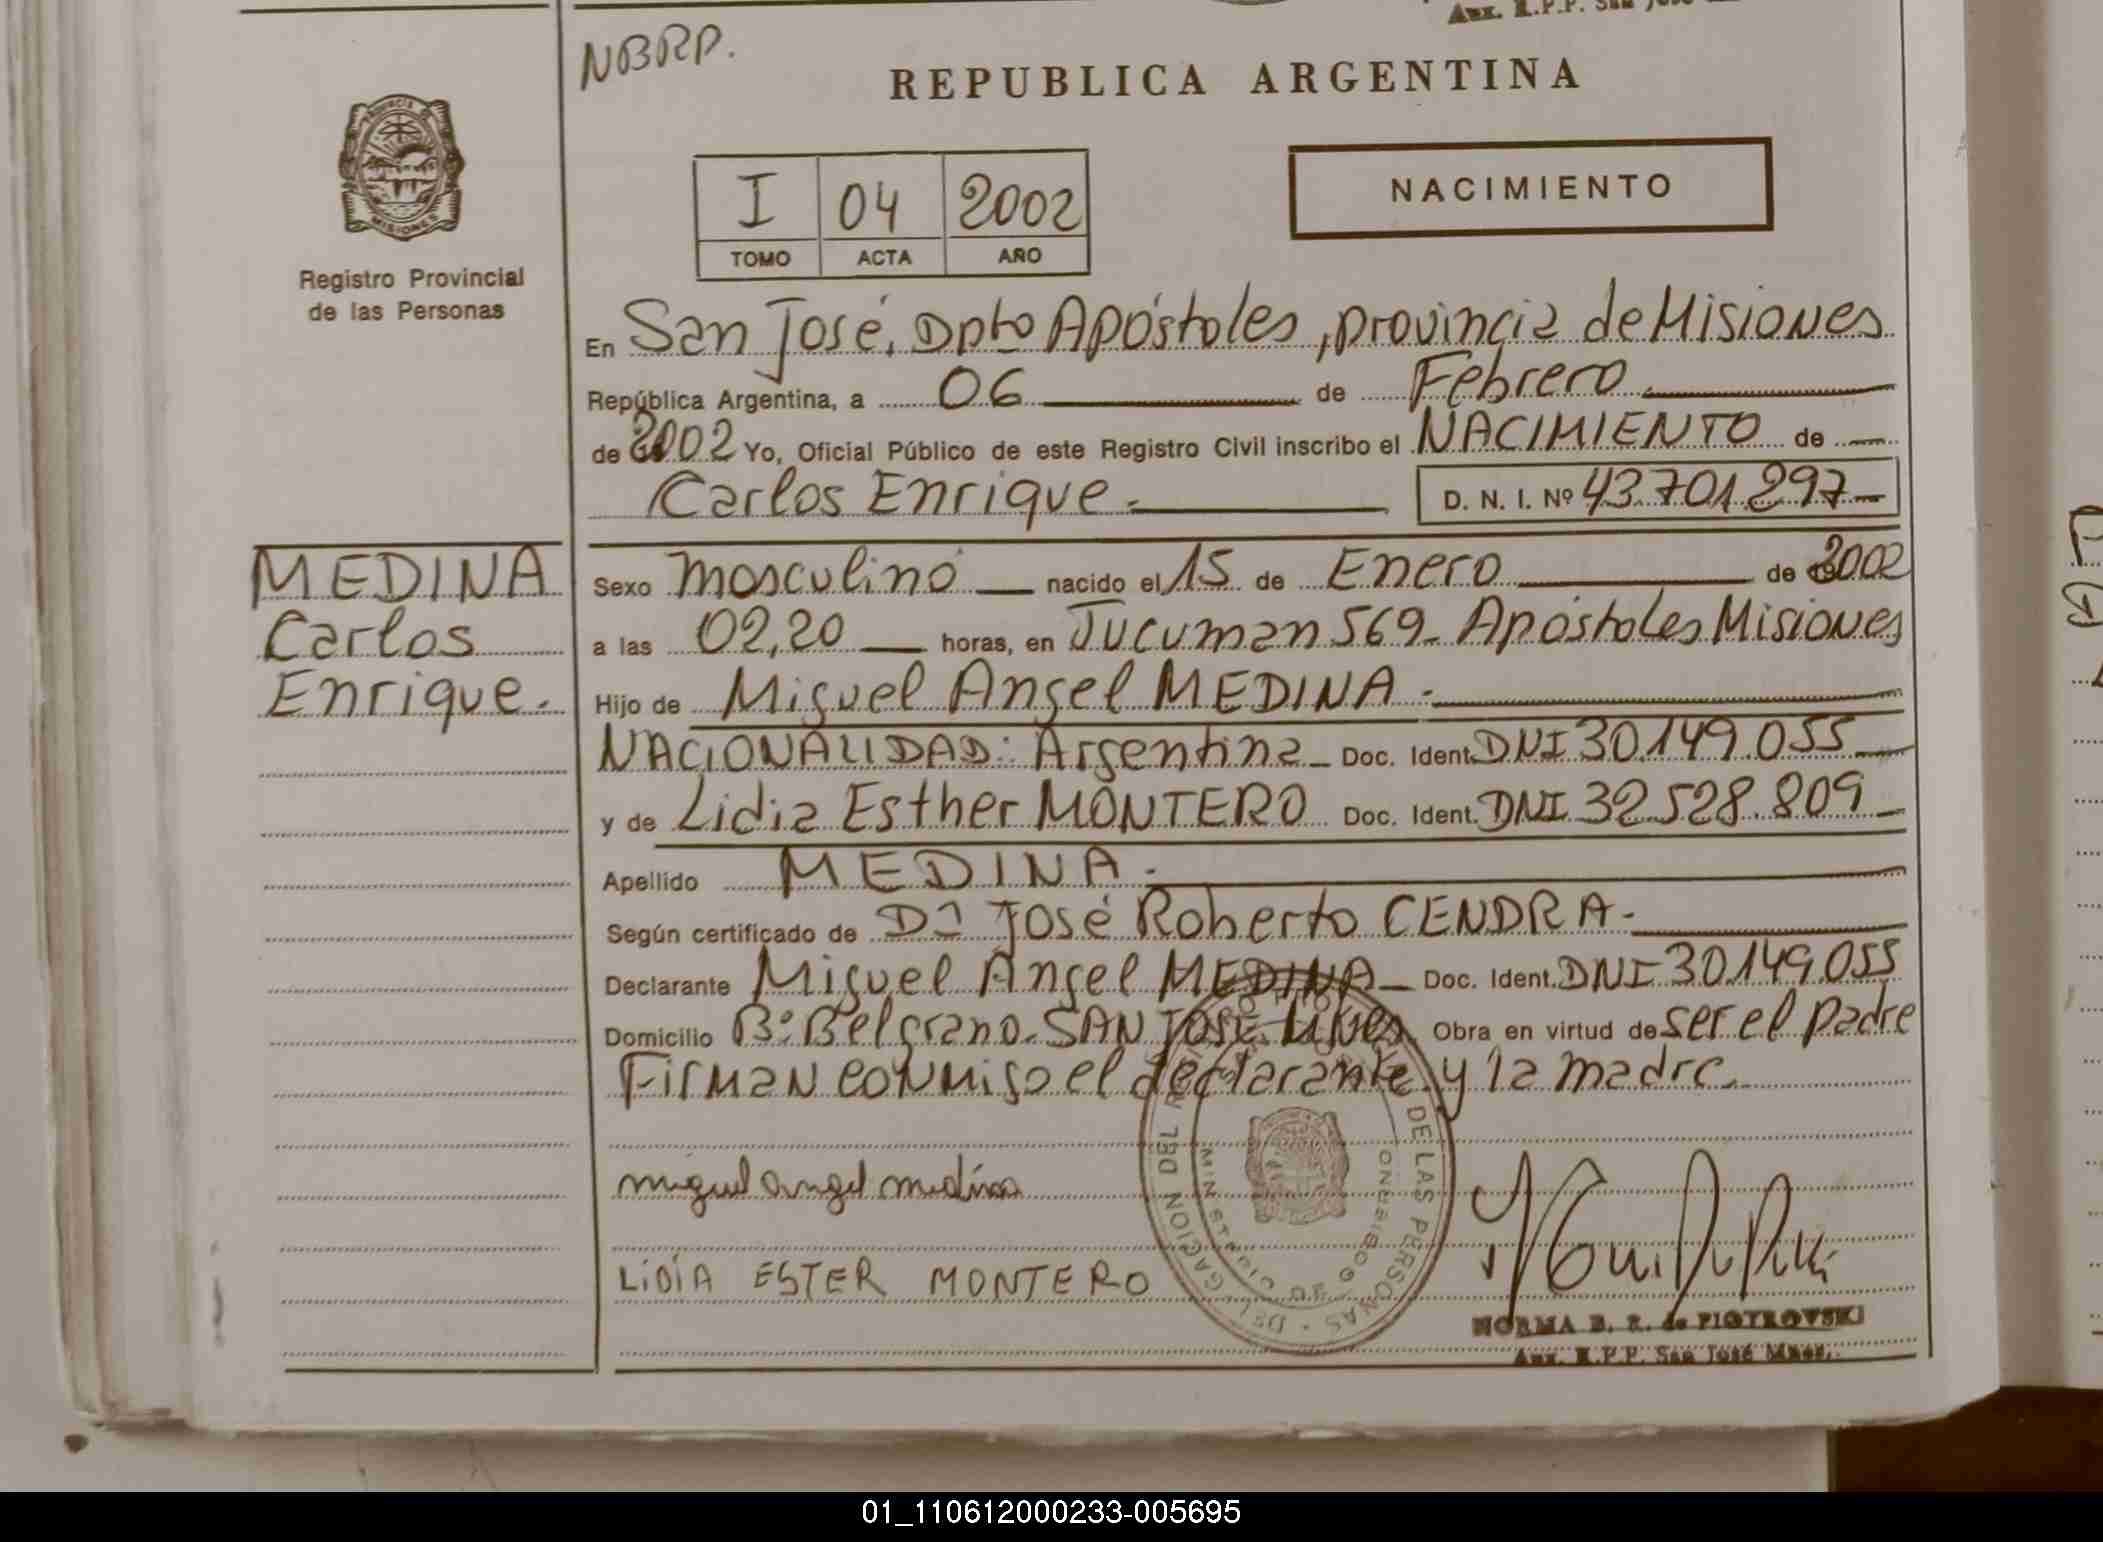 Aux. R.P.P. San José
NBRP.
REPUBLICA ARGENTINA
Provincia
MISIONES
Registro Provincial
de las Personas
I 04 2002
TOMO ACTA AÑO
NACIMIENTO
En San José, Dpto Apóstoles, provincia de Misiones
República Argentina, a 06 de Febrero
de 2002 Yo, Oficial Público de este Registro Civil inscribo el NACIMIENTO de
Carlos Enrique.- D. N. I. Nº 43.701.297
MEDINA
Carlos
Enrique.
Sexo masculino nacido el 15 de Enero de 2002
a las 02,20 horas, en Tucuman 569- Apóstoles Misiones
Hijo de Miguel Angel MEDINA.-
NACIONALIDAD: Argentina - Doc. Ident. DNI 30.149.055
y de Lidia Esther MONTERO Doc. Ident. DNI 32.528.809
Apellido MEDINA.-
Según certificado de Dº José Roberto CENDRA.-
Declarante Miguel Angel MEDINA - Doc. Ident. DNI 30.149.055
Domicilio Bº Belgrano. SAN JOSE. Mnes. Obra en virtud de ser el padre
Firman conmigo el declarante y la madre.
miguel angel medina
LIDIA ESTER MONTERO
DELEGACION DEL REGISTRO PROVINCIAL DE LAS PERSONAS
MINISTERIO DE GOBIERNO
NORMA B. R. de PIOTROVSKI
Aux. R.P.P. San José Mnes.
01_110612000233-005695